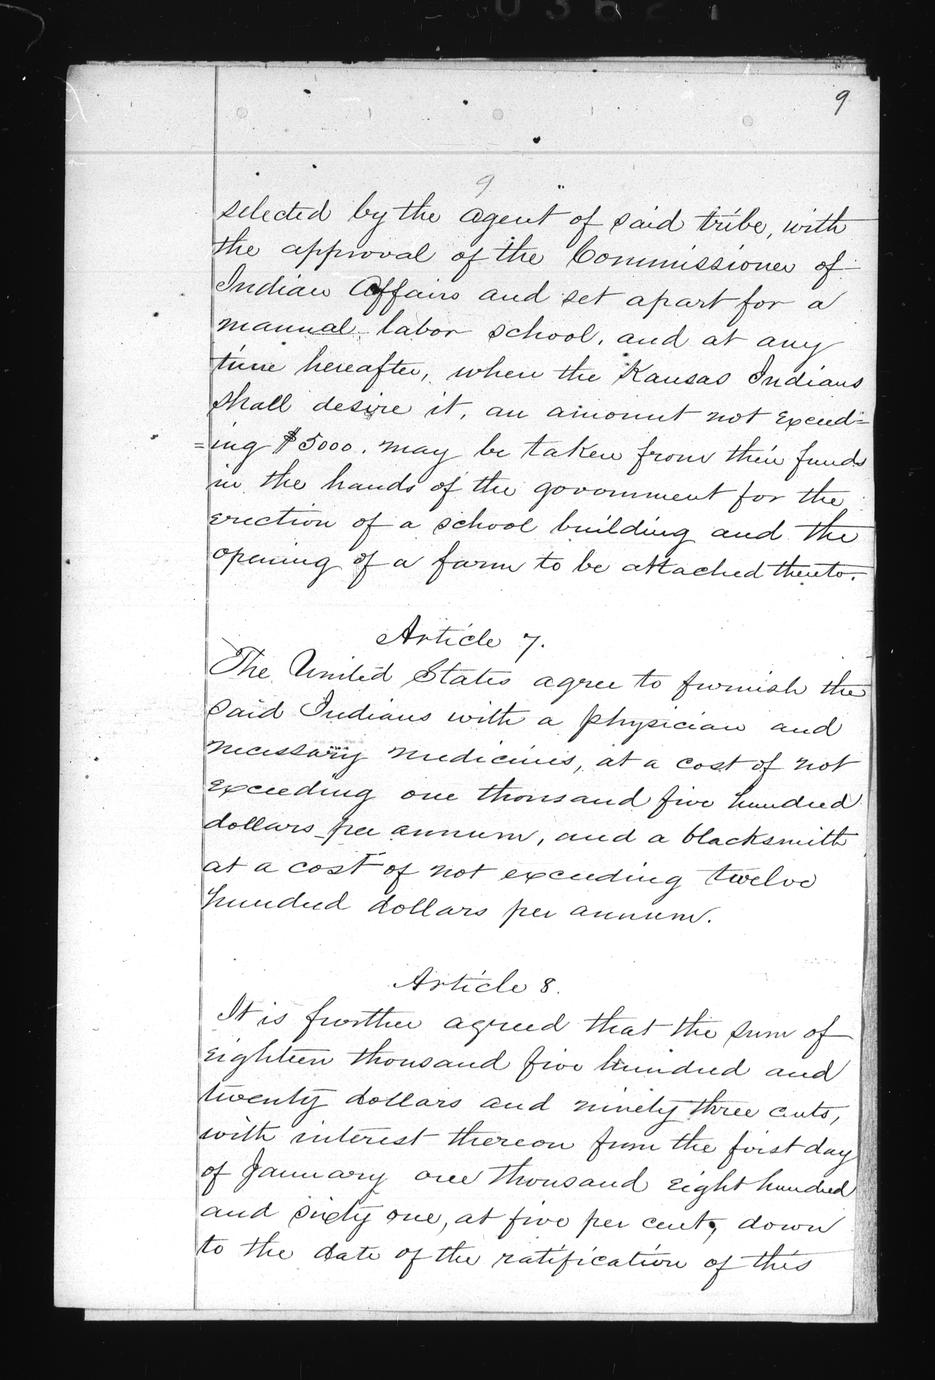 9
9
selected by the Agent of said tribe, with
the approval of the Commissioner of
Indian Affairs and set apart for a
manual labor school, and at any
time hereafter, when the Kansas Indians
shall desire it, an amount not exceed=
=ing $5000. may be taken from their funds
in the hands of the government for the
erection of a school building and the
opening of a farm to be attached thereto.
Article 7.
The United States agree to furnish the
said Indians with a physician and
necessary medicines, at a cost of not
exceeding one thousand five hundred
dollars per annum, and a blacksmith
at a cost of not exceeding twelve
hundred dollars per annum.
Article 8.
It is further agreed that the sum of
eighteen thousand five hundred and
twenty dollars and ninety three cents,
with interest thereon from the first day
of January one thousand eight hundred
and sixty one, at five per cent, down
to the date of the ratification of this